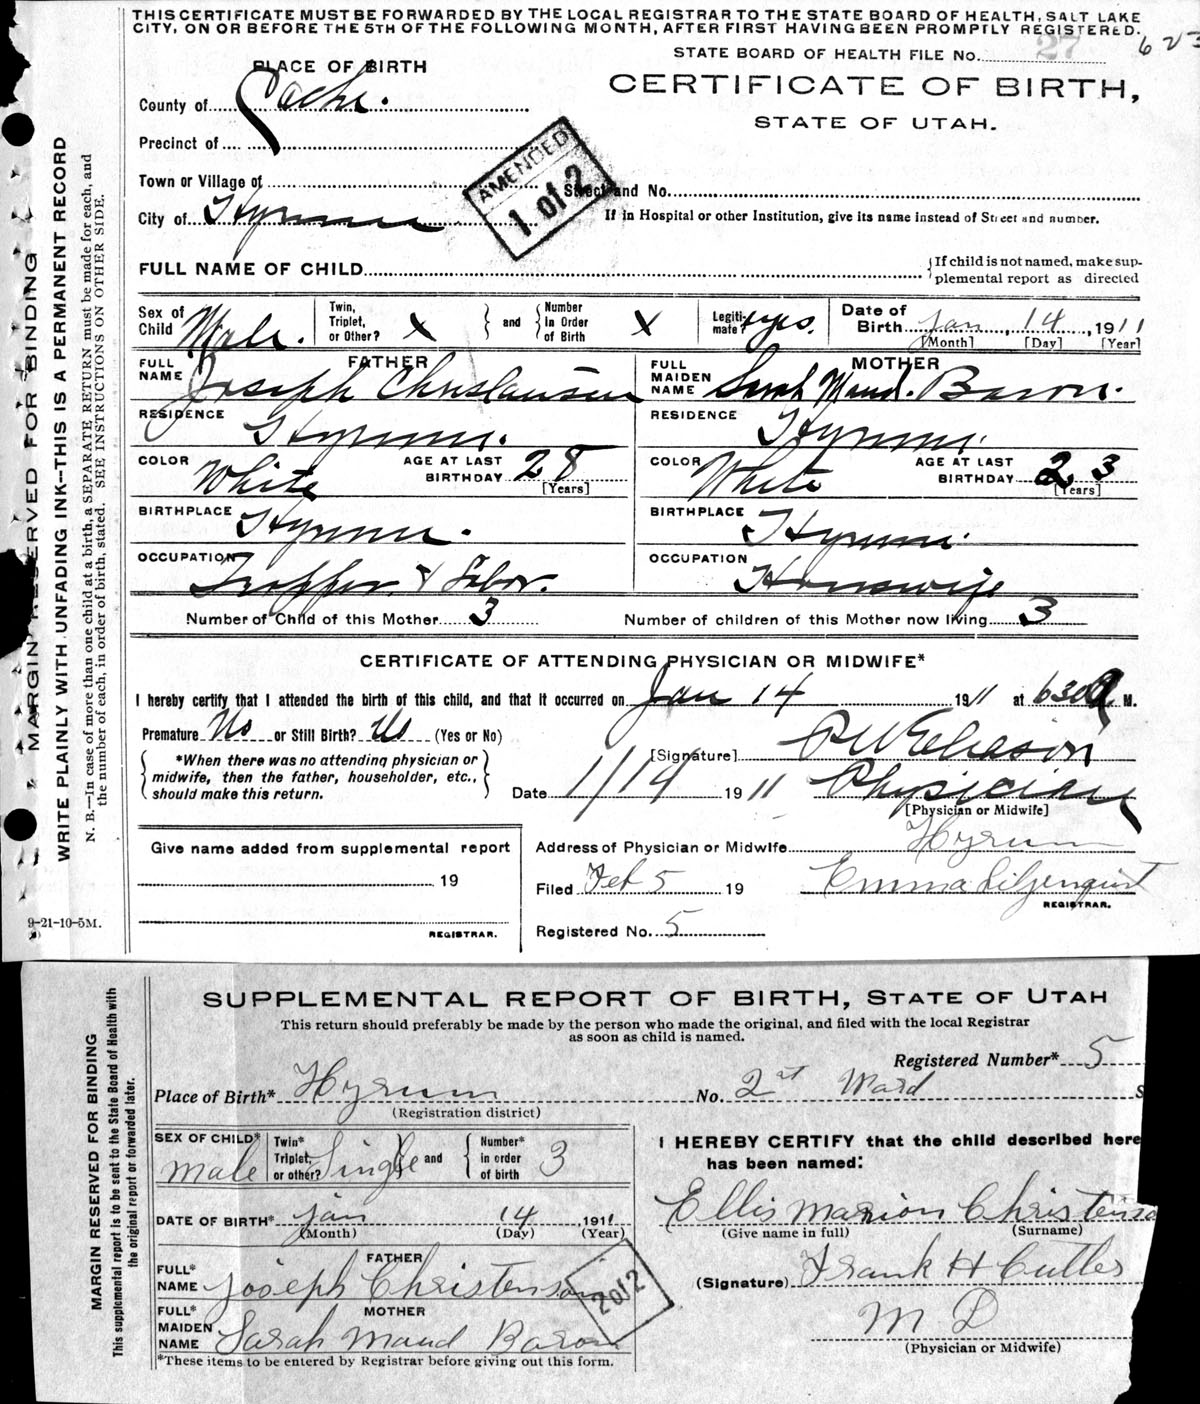 THIS CERTIFICATE MUST BE FORWARDED BY THE LOCAL REGISTRAR TO THE STATE BOARD OF HEALTH, SALT LAKE
CITY, ON OR BEFORE THE 5TH OF THE FOLLOWING MONTH, AFTER FIRST HAVING BEEN PROMPTLY REGISTERED.
27 623
STATE BOARD OF HEALTH FILE No.
PLACE OF BIRTH
CERTIFICATE OF BIRTH,
STATE OF UTAH.
County of Cache.
Precinct of
Town or Village of
Street and No.
AMENDED
1 of 2
City of Hyrum
If in Hospital or other Institution, give its name instead of Street and number.
FULL NAME OF CHILD
{If child is not named, make sup-
plemental report as directed
Sex of Child Male. Twin, Triplet, or Other? X } and { Number In Order of Birth X Legiti-mate? yes. Date of Birth Jan, 14, 1911
[Month] [Day] [Year]
FATHER
MOTHER
FULL NAME Joseph Chrislausen
FULL MAIDEN NAME Sarah Maud. Baron.
RESIDENCE Hyrum.
RESIDENCE Hyrum.
COLOR White AGE AT LAST BIRTHDAY 28 [Years]
COLOR White AGE AT LAST BIRTHDAY 23 [Years]
BIRTHPLACE Hyrum.
BIRTHPLACE Hyrum.
OCCUPATION Trapper & Labor.
OCCUPATION Housewife
Number of Child of this Mother 3 Number of children of this Mother now living 3
CERTIFICATE OF ATTENDING PHYSICIAN OR MIDWIFE*
I hereby certify that I attended the birth of this child, and that it occurred on Jan 14 1911 at 630 a M.
Premature No or Still Birth? No (Yes or No)
{*When there was no attending physician or
midwife, then the father, householder, etc.,
should make this return.}
[Signature] Eliason
Date 1/14 1911 Physician
[Physician or Midwife]
Give name added from supplemental report
19
REGISTRAR.
Address of Physician or Midwife Hyrum
Filed Feb 5 19 Emma Liljenquist
REGISTRAR.
Registered No. 5
9-21-10-5M.
MARGIN RESERVED FOR BINDING
WRITE PLAINLY WITH UNFADING INK—THIS IS A PERMANENT RECORD
N. B.—In case of more than one child at a birth, a SEPARATE RETURN must be made for each, and
the number of each, in order of birth, stated. SEE INSTRUCTIONS ON OTHER SIDE.
SUPPLEMENTAL REPORT OF BIRTH, STATE OF UTAH
This return should preferably be made by the person who made the original, and filed with the local Registrar
as soon as child is named.
Registered Number* 5
Place of Birth* Hyrum No. 2nd Ward S
(Registration district)
SEX OF CHILD* male Twin* Triplet, or other? Single } and { Number* in order of birth 3
DATE OF BIRTH* Jan 14 1911
(Month) (Day) (Year)
FATHER
FULL* NAME Joseph Christenson
MOTHER
FULL* MAIDEN NAME Sarah Maud Baron
*These items to be entered by Registrar before giving out this form.
2 of 2
I HEREBY CERTIFY that the child described here
has been named:
Ellis Marion Christenso
(Give name in full) (Surname)
(Signature) Frank H Cutler
M D
(Physician or Midwife)
MARGIN RESERVED FOR BINDING
This supplemental report is to be sent to the State Board of Health with
the original report or forwarded later.